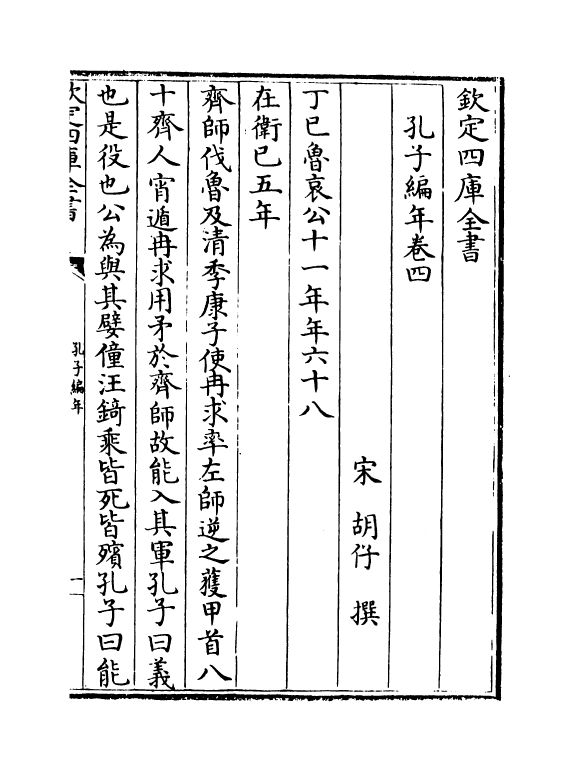 欽定四庫全書
孔子編年卷四
宋 胡仔 撰
丁巳魯哀公十一年年六十八
在衛已五年
齊師伐魯及清季康子使冉求率左師逆之獲甲首八
十齊人宵遁冉求用矛於齊師故能入其軍孔子曰義
也是役也公為與其嬖僮汪錡乘皆死皆殯孔子曰能
欽定四庫全書
孔子編年
一